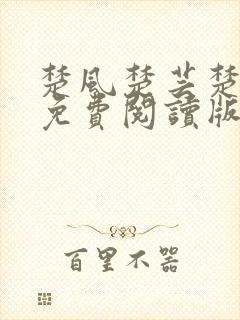 楚风楚芸楚
免費閱讀版
百里不器